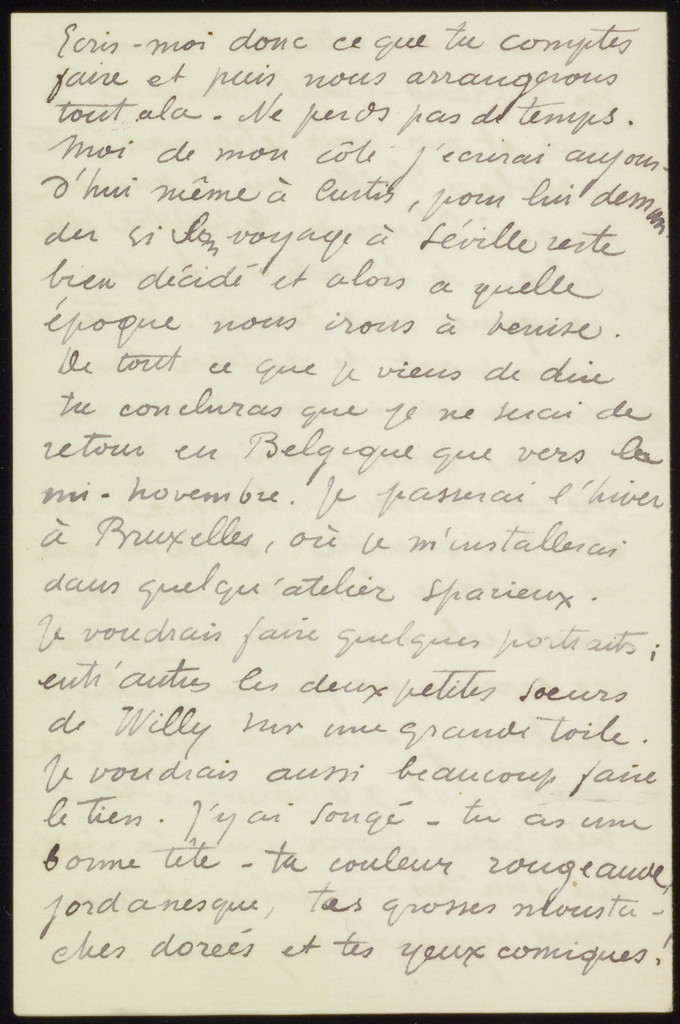 Ecris-moi donc ce que tu comptes
faire et puis nous arrangerons
tout cela. Ne perds pas de temps.
Moi de mon côté j'ecrirai aujour-
d'hui même à Curtis, pour lui deman
der si le voyage à Séville reste
bien décidé et alors a quelle
époque nous irons à Venise.
De tout ce que je viens de dire
tu concluras que je ne serai de
retour en Belgique que vers la
mi-Novembre. Je passerai l'hiver
à Bruxelles, où je m'installerai
dans quelqu'atelier spacieux.
Je voudrais faire quelques portraits;
entr'autres les deux petites soeurs
de Willy sur une grande toile.
Je voudrais aussi beaucoup faire
le tien. J'y ai songé - tu as une
bonne tête - ta couleur rougeaude,
jordanesque, tes grosses mousta-
ches doreés et tes yeux comiques!